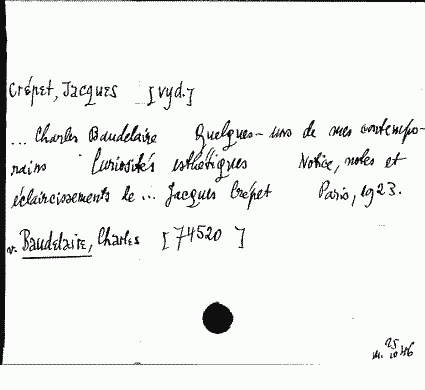 Crépet, Jacques [vyd.]
... Charles Baudelaire Quelques-uns de mes contempo-
rains Curiosités esthétiques Notice, notes et
éclaircissements de ... Jacques Crépet Paris, 1923.
v. Baudelaire, Charles [74520 ]
25